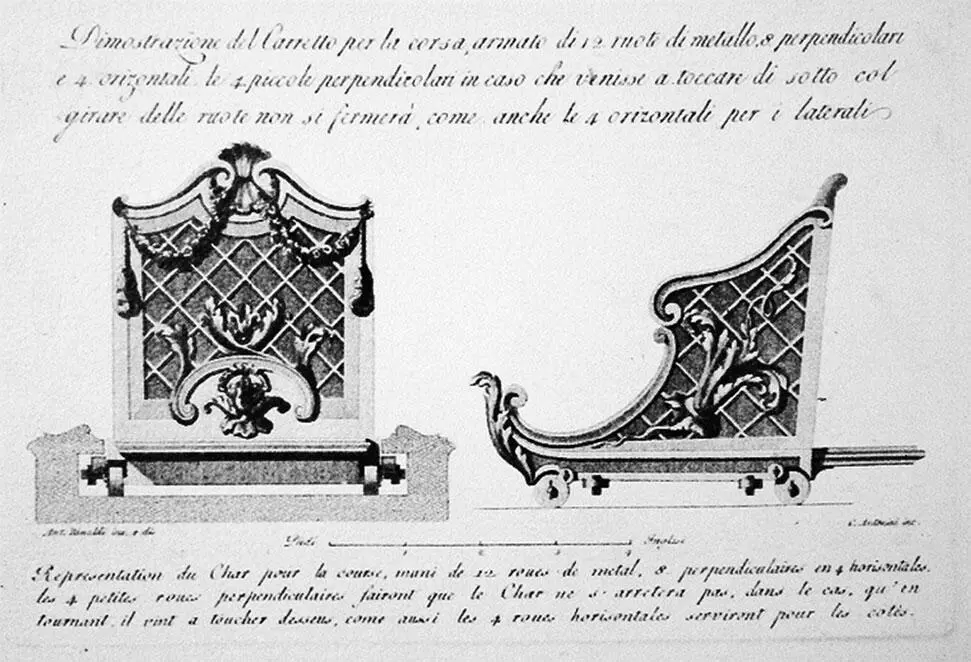 Dimostrazione del Carretto per la corsa, armato di 12 ruote di metallo, 8 perpendicolari
e 4 orizontali, le 4 piccole perpendicolari in caso che venisse a toccare di sotto col
girare delle ruote non si fermerà, come anche le 4 orizontali per i laterali
Ant. Rinaldi inv. e di
C. Antonini inc.
Piedi Inglesi
1 2 3 4
Représentation du Char pour la course, muni de 12 roues de metal, 8 perpendiculaires en 4 horisontales.
les 4 petites roues perpendiculaires fairont que le Char ne s'arretera pas, dans le cas, qu'en
tournant, il vint a toucher dessous, come aussi les 4 roues horisontales serviront pour les cotés.